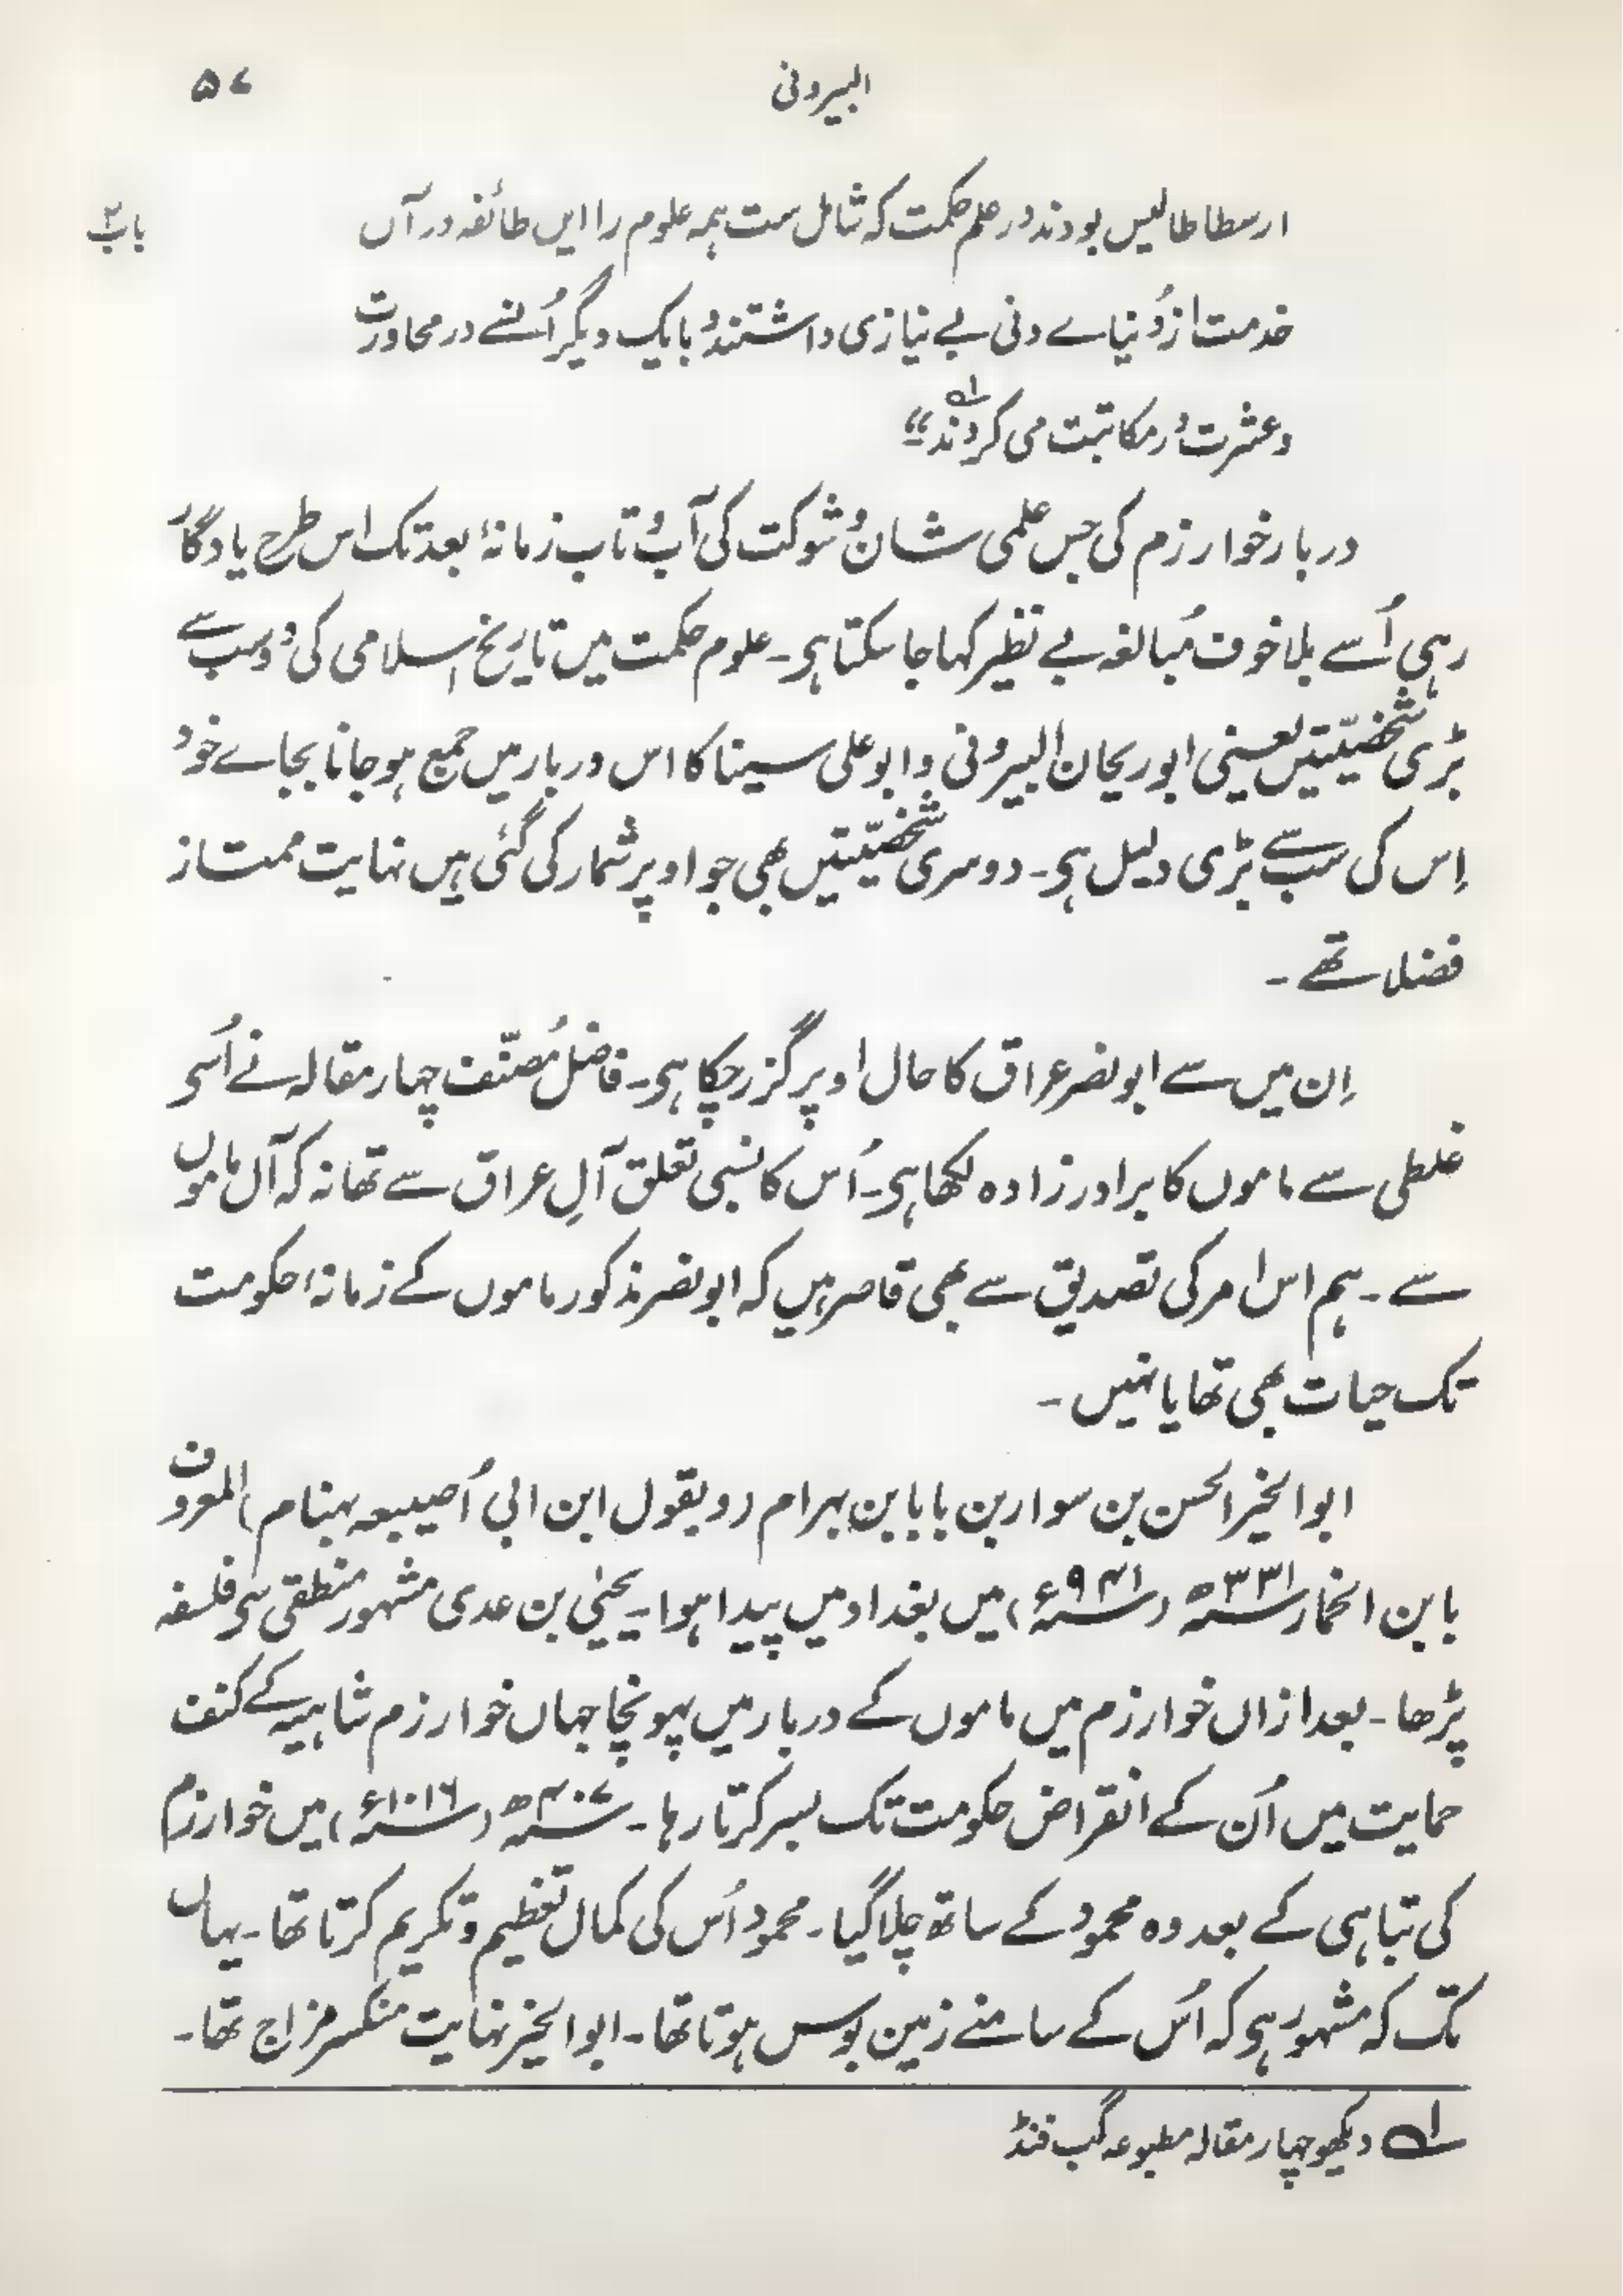 البیرونی ۵۷
ارسطاطالیس بودند در علم حکمت کہ شامل ست ہمہ علوم را ایں طائفہ در آں
باب۲
خدمت از دُنیاے دنی بے نیازی داشتند و بایک دیگر اُنسے در محاورت
و عشرت در مکاتبت می کردند"لہ
دربار خوارزم کی جس علمی شان و شوکت کی آب و تاب زمانۂ بعد تک اس طرح یادگار
رہی اُسے بلا خوف مُبالغہ بے نظیر کہا جا سکتا ہی۔ علوم حکمت میں تاریخ اسلامی کی دو سب سے
بڑی شخصیّتیں یعنی ابو ریحان البیرونی و ابو علی سینا کا اس دربار میں جمع ہو جانا بجاے خود
اِس کی سب سے بڑی دلیل ہی۔ دوسری شخصیّتیں بھی جو اوپر شمار کی گئی ہیں نہایت ممتاز
فضلا تھے ۔
اِن میں سے ابو نصر عراق کا حال اوپر گزر چکا ہی۔ فاضل مُصنّف چہار مقالہ نے اُسی
غلطی سے ماموں کا برادر زادہ لکھا ہی۔ اُس کا نسبی تعلق آلِ عراق سے تھا نہ کہ آل ماموں
سے ۔ ہم اس امر کی تصدیق سے بھی قاصر ہیں کہ ابو نصر مذکور ماموں کے زمانۂ حکومت
تک حیات بھی تھا یا نہیں ۔
ابو الخیر الحسن بن سوار بن بابا بن بہرام (و بقول ابن ابی اُصیبعہ بہنام) المعروف
بابن الخمار ۳۳۱ھ (۹۴۱ء) میں بغداد میں پیدا ہوا۔ یحیٰی بن عدی مشہور منطقی سی فلسفہ
پڑھا ۔ بعد ازاں خوارزم میں ماموں کے دربار میں پہونچا جہاں خوارزم شاہیہ کے کنف
حمایت میں اُن کے انقراض حکومت تک بسر کرتا رہا ۔ ۴۰۷ھ (۱۰۱۶ء) میں خوارزم
کی تباہی کے بعد وہ محمود کے ساتھ چلا گیا ۔ محمود اُس کی کمال تعظیم و تکریم کرتا تھا ۔ یہاں
تک کہ مشہور ہی کہ اُس کے سامنے زمین بوس ہوتا تھا ۔ ابو الخیر نہایت منکسر مزاج تھا ۔
لہ دیکھو چہار مقالہ مطبوعہ گب فنڈ